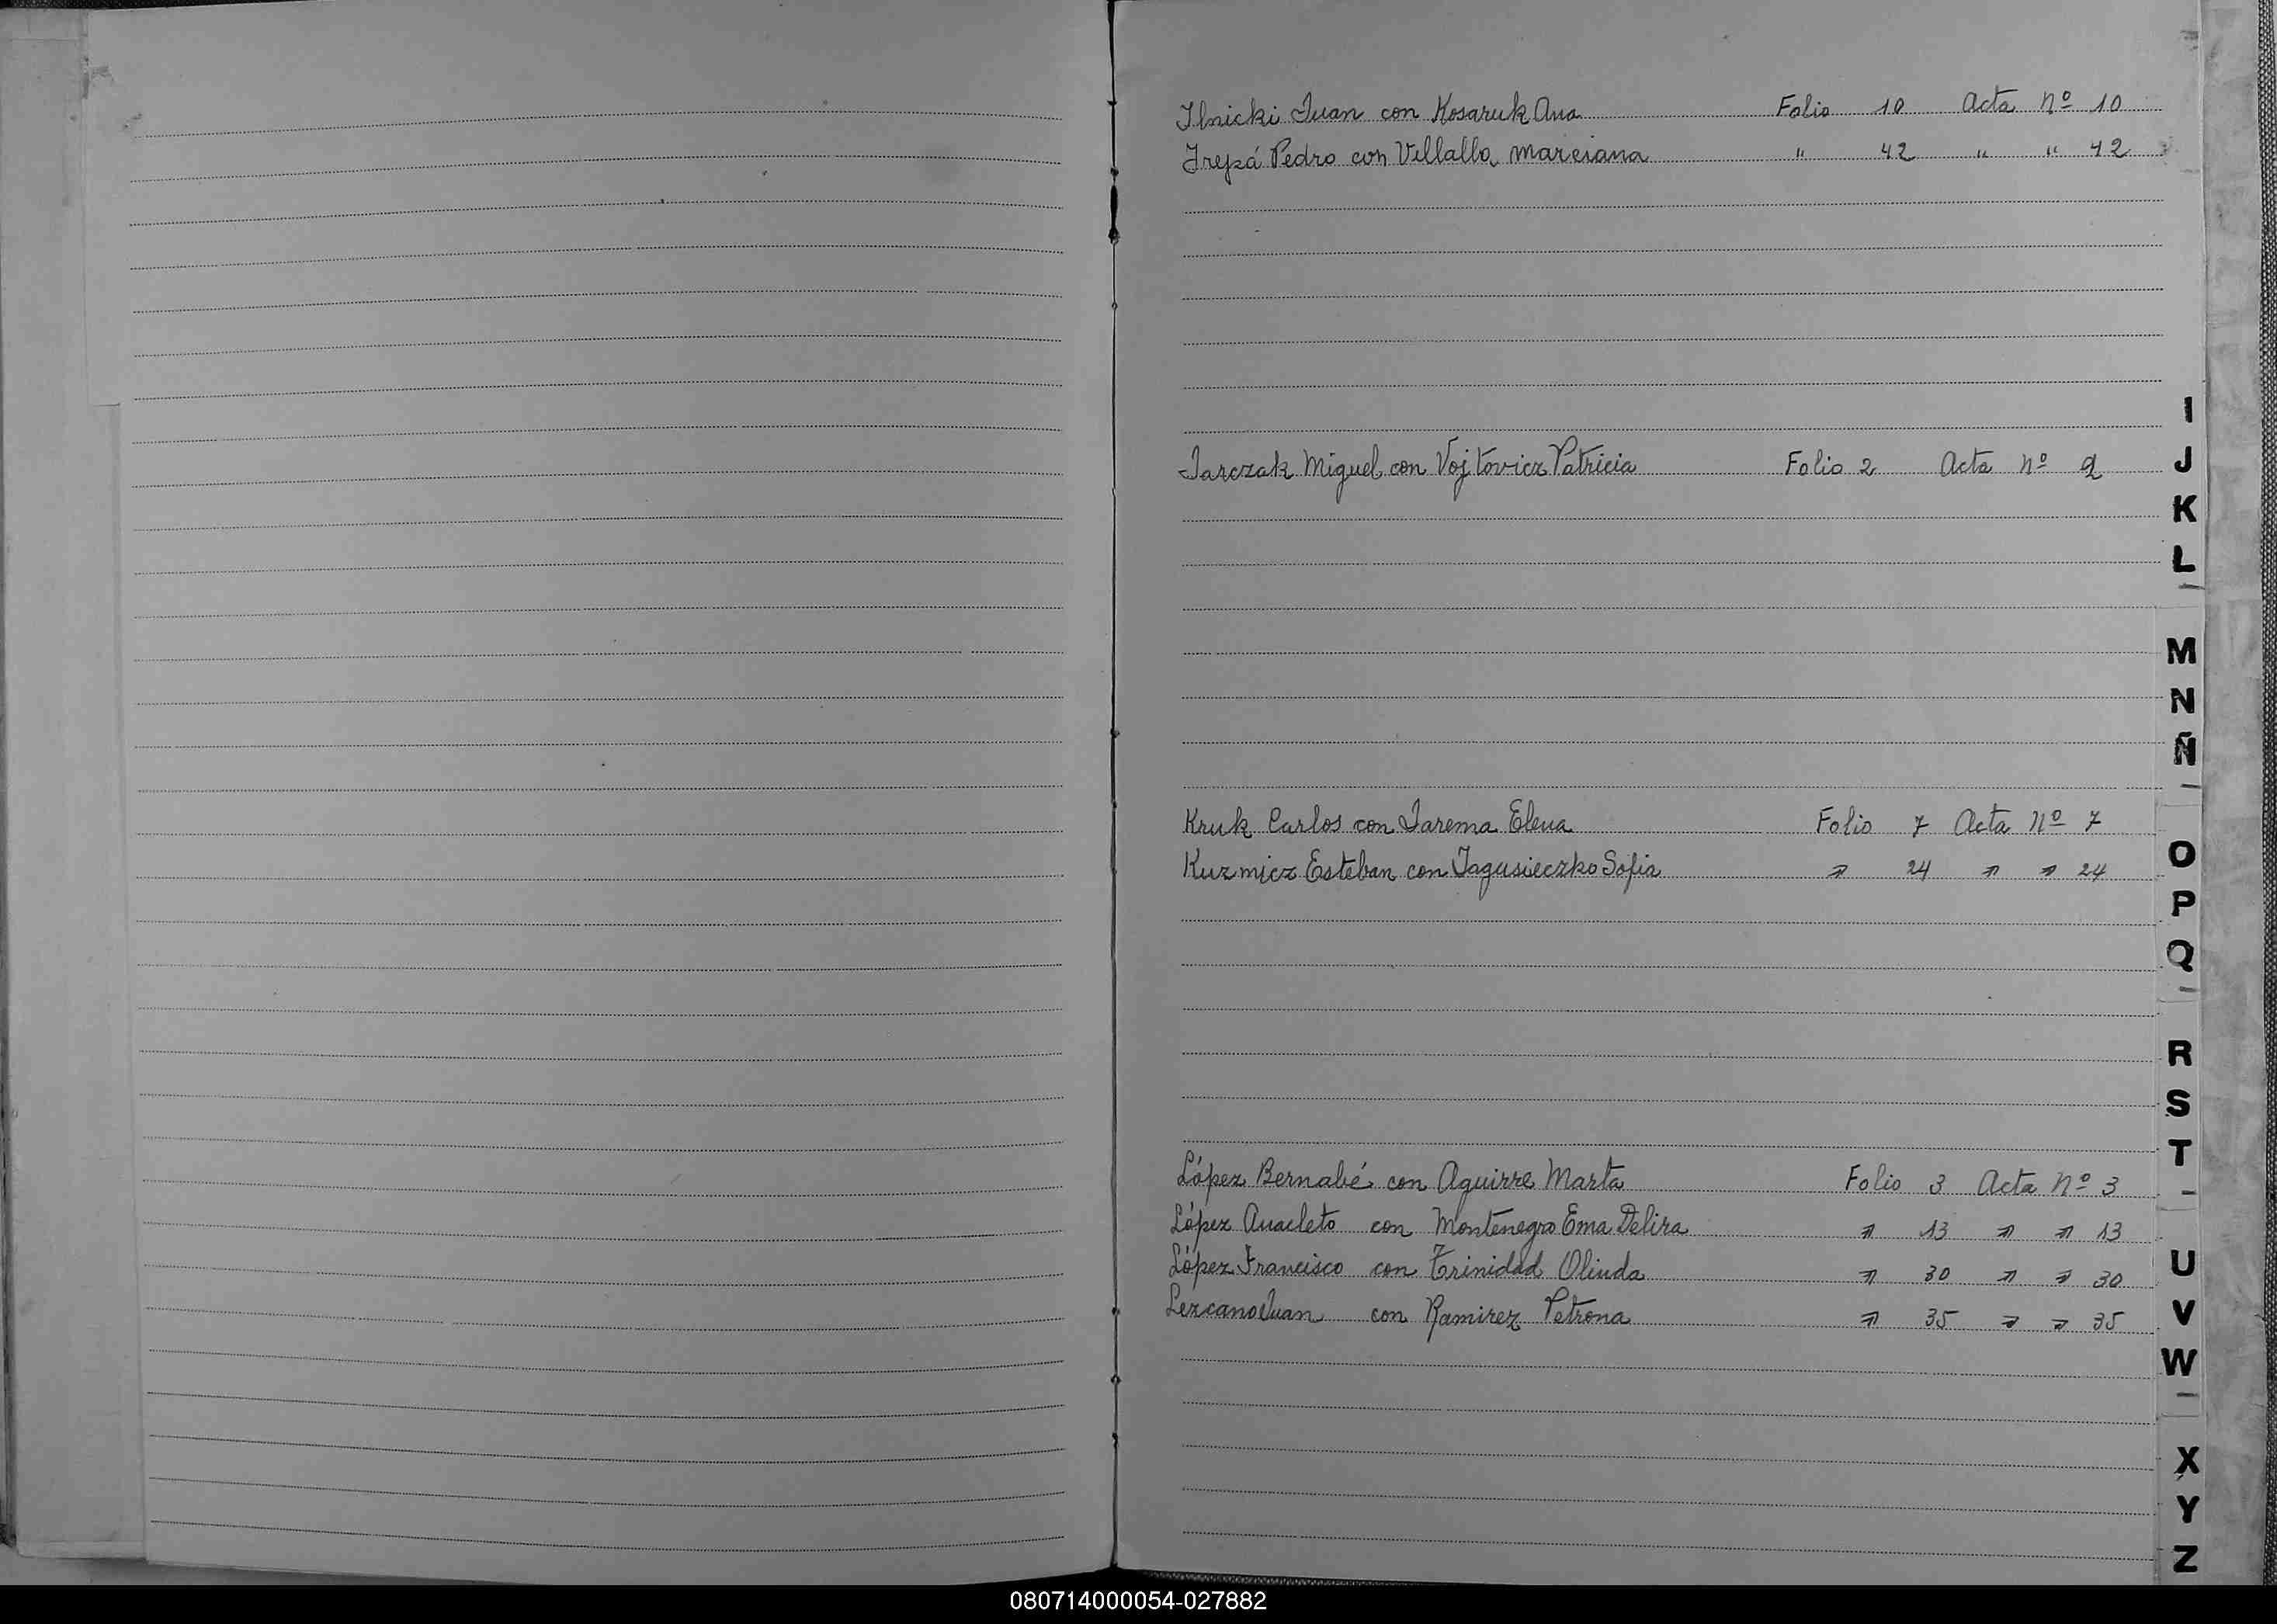 Ilnicki Juan con Kosaruk Ana Folio 10 Acta Nº 10
Pedro con Villalla Marciana " 42 " " 42
I
Jarczak Miguel con Vojtovicz Patricia Folio 2 Acta Nº 2
J
K
L
M
N
Ñ
Kruk Carlos con Jarema Elena Folio 7 Acta Nº 7
Kuzmicz Esteban con Jagusieczko Sofia " 24 " " 24
O
P
Q
R
S
T
López Bernabé con Aguirre Marta Folio 3 Acta Nº 3
López Anacleto con Montenegro Ema Delira " 13 " " 13
López Francisco con Trinidad Olinda " 30 " " 30
Lezcano Juan con Ramirez Petrona " 35 " " 35
U
V
W
X
Y
Z
080714000054-027882